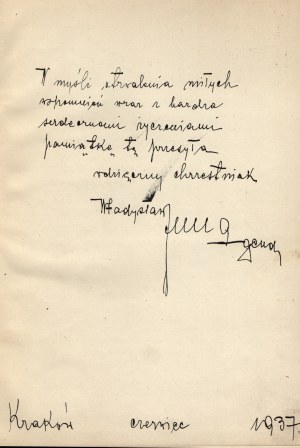 W myśli utrwalenia miłych
wspomnień wraz z bardzo
serdecznemi życzeniami
pamiątkę tą przesyła
wdzięczny chrześniak
Władysław
Kraków czerwiec 1937.